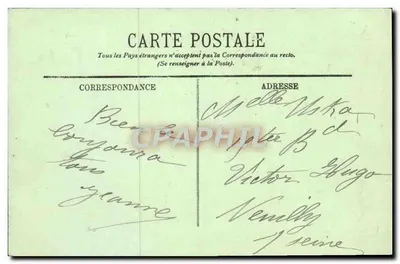 CARTE POSTALE
Tous les Pays étrangers n'acceptent pas la Correspondance au recto.
(Se renseigner à la Poste).
CORRESPONDANCE
ADRESSE
Bien
bonjour à
tous
Jeanne
Melle
Bd
Victor Hugo
Neuilly
s/ seine
CPAPHIL